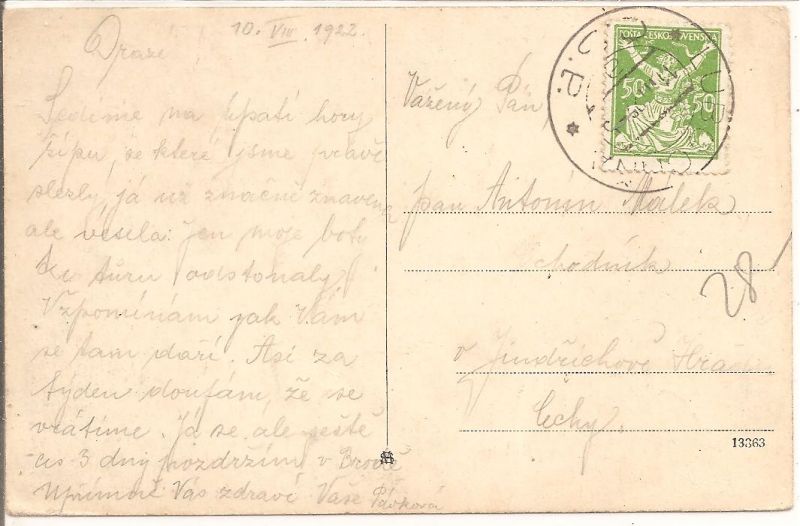 10. VIII. 1922.
Drazí
Sedíme na úpatí hory
Žípu, se které jsme právě
slezly, já už značně znavena
ale vesela. Jen moje boty
tu túru odstonaly.
Vzpomínám jak Vám
se tam daří. Asi za
týden doufám, že se
vrátíme. Já se ale ještě
as 3 dny pozdržím v Brodě
Upřímně Vás zdraví Vaše
Vážený Pán,
pan Antonín Málek
obchodník
v Jindřichově Hra
Čechy.
28
POŠTA ČESKOSLOVENSKA
50 50
Č.P.
13363